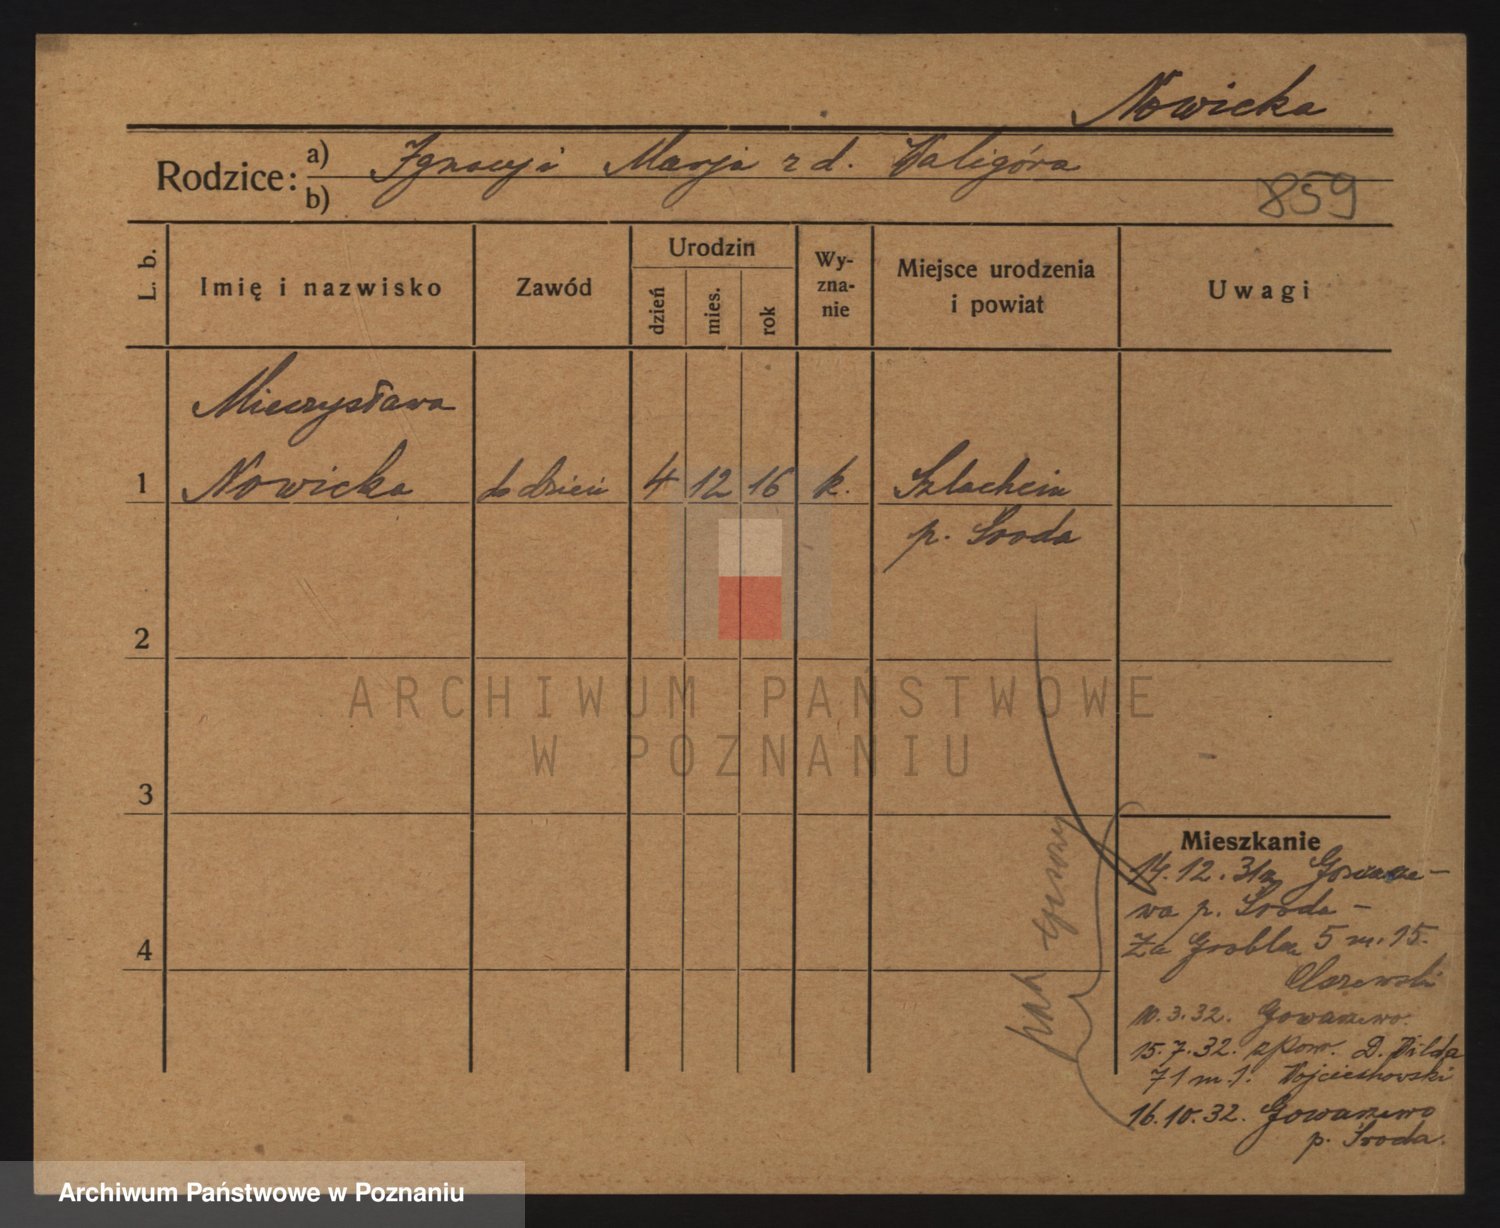 Nowicka
Rodzice: a) Ignacy i Marja z d. Waligóra
b)
859
L. b.
Imię i nazwisko
Zawód
Urodzin
dzień
mies.
rok
Wy-
zna-
nie
Miejsce urodzenia
i powiat
Uwagi
Mieczysława
1 Nowicka
4 12 16 k. Szlachcin
p. Środa
2
3
4
Mieszkanie
14.12.31 z
wa p. Środa –
Za Groblą 5 m. 15.
10.3.32. Gowarzewo.
15.7.32. z pow. D. Wilda
71 m. 1. Wojciechowski
16.10.32. Gowarzewo
p. Środa.
ARCHIWUM PAŃSTWOWE
W POZNANIU
Archiwum Państwowe w Poznaniu